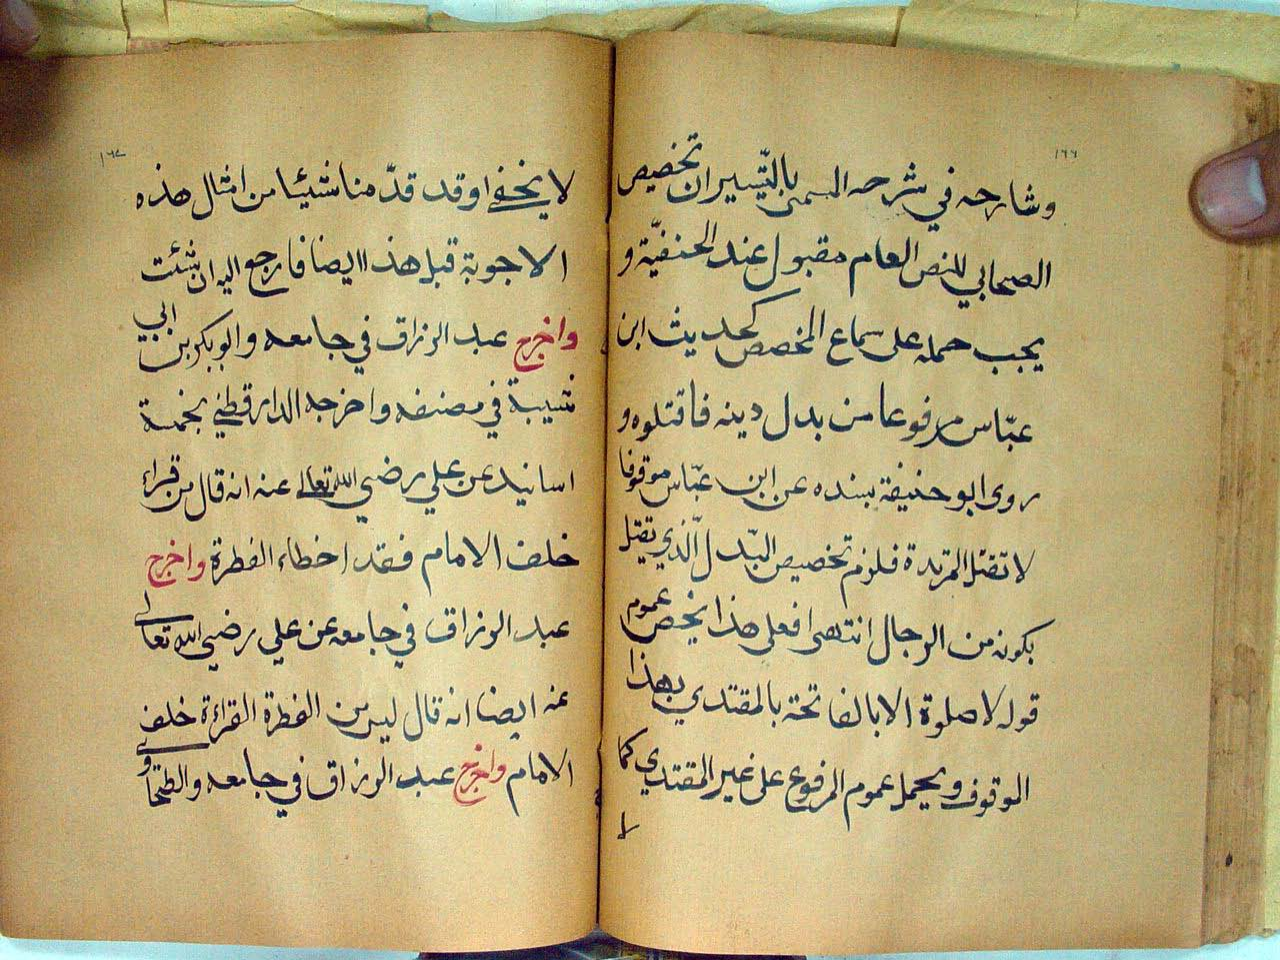 ١٦٦
وشارحه في شرحه المسمى بالتّيسير ان تخصيص
الصحابي للنص العام مقبول عند الحنفيّة و
يجب حمله على سماع المخصص كحديث ابن
عبّاس مرفوعا من بدل دينه فاقتلوه و
روى ابو حنيفة بسنده عن ابن عبّاس موقوفا
لا تقتل المرتدة فلزم تخصيص البّدل الّذي يقتل
بكونه من الرجال انتهى فعلى هذا يخص عموم
قوله لا صلوة الا بالفاتحة بالمقتدي بهذا
الوقوف ويحمل عموم المرفوع على غير المقتدي كما
لا
١٦٧
لا يخفى وقد قدّمنا شيئا من امثال هذه
الاجوبة قبل هذا ايضا فارجع اليه ان شئت
واخرج عبد الرزاق في جامعه وابو بكر بن ابي
شيبة في مصنفه واخرجه الدارقطني بخمسة
اسانيد عن علي رضي الله تعالى عنه انه قال من قراء
خلف الامام فقد اخطاء الفطرة واخرج
عبد الرزاق في جامعه عن علي رضي الله تعالى
عنه ايضا انه قال ليس من الفطرة القراءة خلف
الامام واخرج عبد الرزاق في جامعه والطحاوي